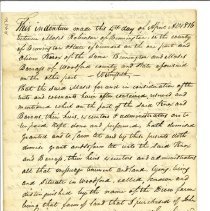 This indenture made the 4th day of April AD 1816
between Moses Robinson of Bennington in the county
of Bennington State of Vermont on the one part and
of the same Bennington and Moses
of Woodford county and State aforesaid
on the other part Witnesseth
That the said Moses for and in consideration of the
rents and covenants herein after contained, reserved and
mentioned which on the part of the said
their heirs, executors & administrators are to
be paid kept done and performed hath demised
granted and to farm let and by this presents doth
demise grant and to farm let unto the said
and their heirs executors and administrators
all that messuage tenement and land lying being
and situate in Woodford, called known and
distinguished by the name of the farm
being that farm of land that I purchased of